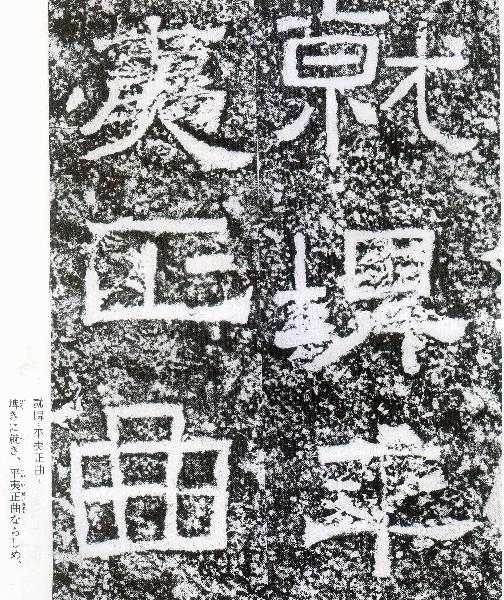 就埤平
夷正曲
就埤、平夷正曲、
埤きに就き、平夷正曲ならしめ、